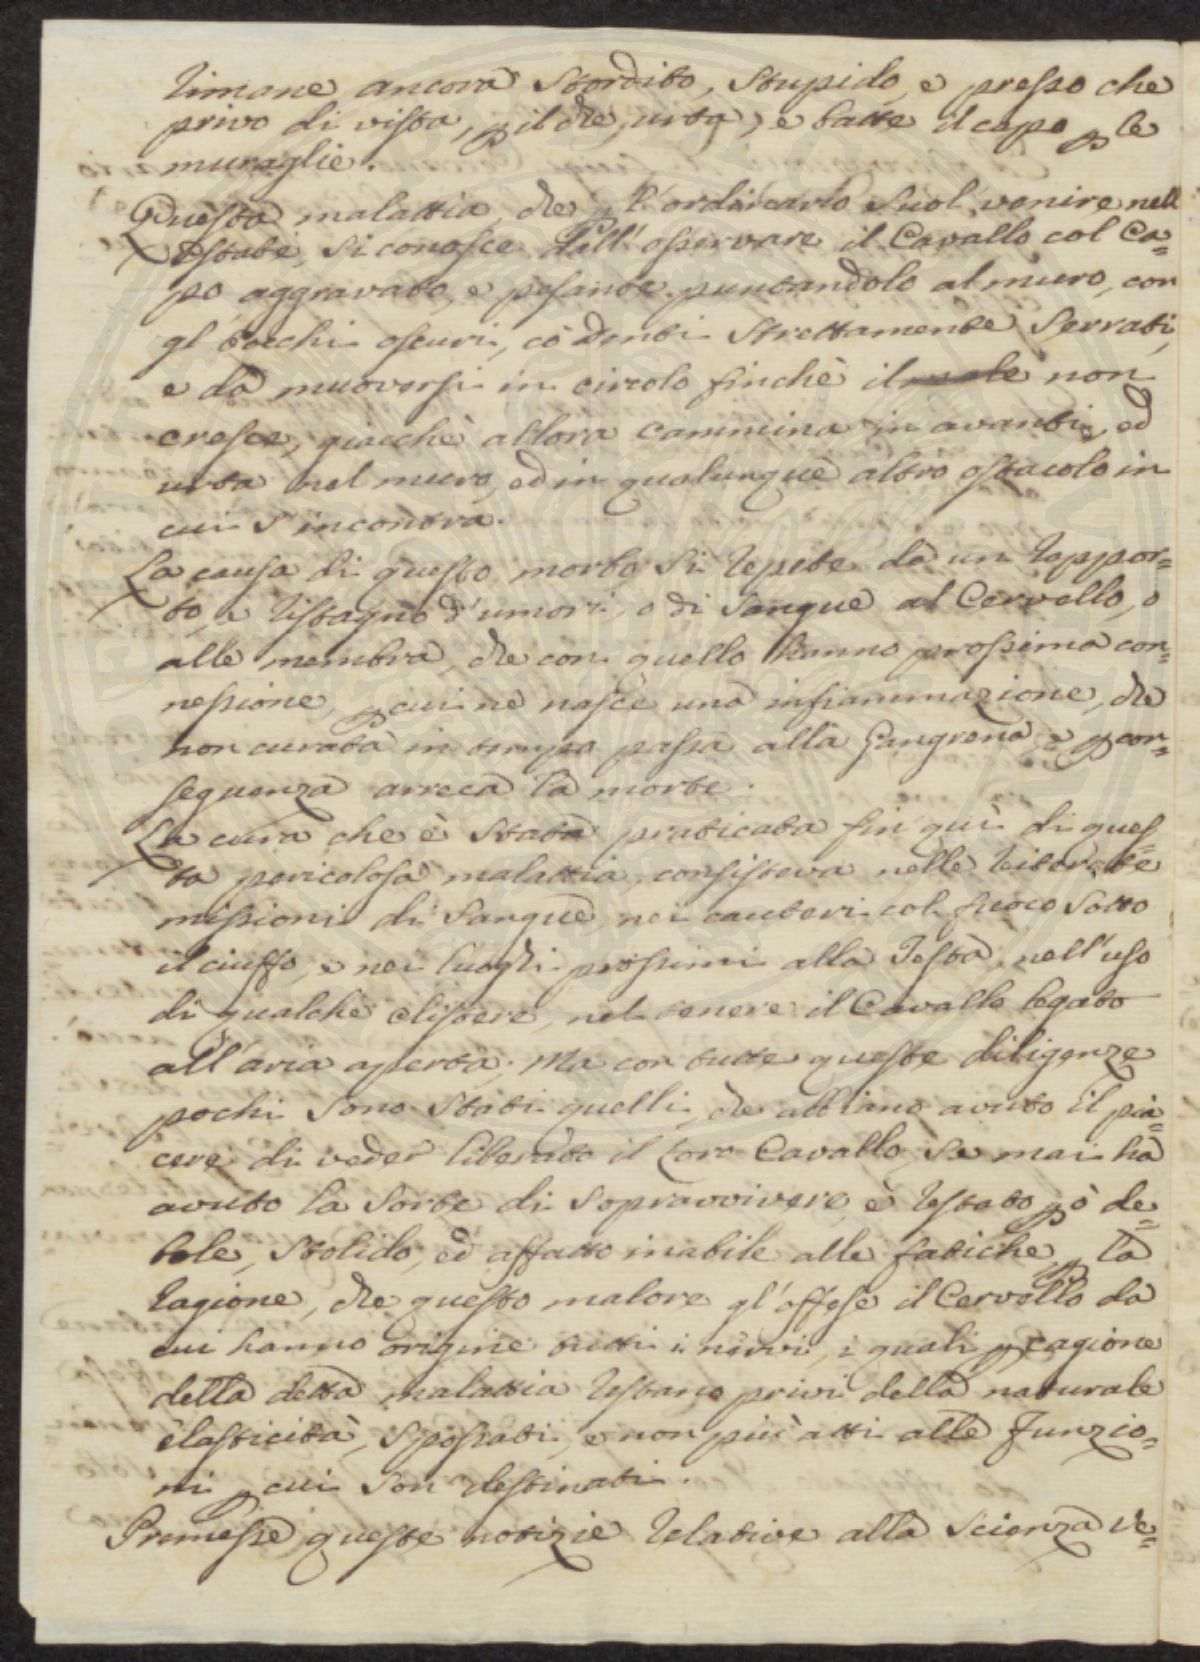 rimane ancora stordito, stupido, e presso che
privo di vista, p il che, urta, e batte il capo p le
muraglie.
Questa malattia, che p l'ordinario suol venire nell
Estate, si conosce dall'osservare il Cavallo col Ca=
po, aggravato, e pesante puntandolo al muro, con
gl'occhi oscuri, co denti strettamente serrati,
e da muoversi in circolo finchè il male non
cresce, giacchè allora cammina in avanti, ed
urta nel muro, ed in qualunque altro ostacolo in
cui s'incontra.
La causa di questo morbo si repete da un rappor=
to, e ristagno d'umori, o di sangue al Cervello, o
alle membra, che con quello hanno prossima con=
nessione, p cui ne nasce una infiammazione, che
non curata in tempo passa alla Gangrena, e p con=
seguenza arreca la morte.
La cura che è stata praticata fin quì di ques=
ta pericolosa malattia, consisteva nelle reiterate
missioni di sangue, nei cauteri col fuoco sotto
il ciuffo, e nei luoghi prossimi alla Testa, nell'uso
di qualche clistere, nel tenere il Cavallo legato
all'aria aperta; Ma con tutte queste diligenze
pochi sono stati quelli, che abbiano avuto il pia=
cere di veder liberato il loro Cavallo, se mai ha
avuto la sorte di sopravvivere, è restato p ò de=
bole, stolido, ed affatto inabile alle fatiche, p la
ragione, che questo malore gl'offese il Cervello da
cui hanno origine tutti i nervi, i quali p cagione
della detta malattia restano privi della naturale
elasticità, spossati, e non più atti alle Funzio=
ni p cui son destinati.
Premesse queste notizie relative alla scienza Ve=